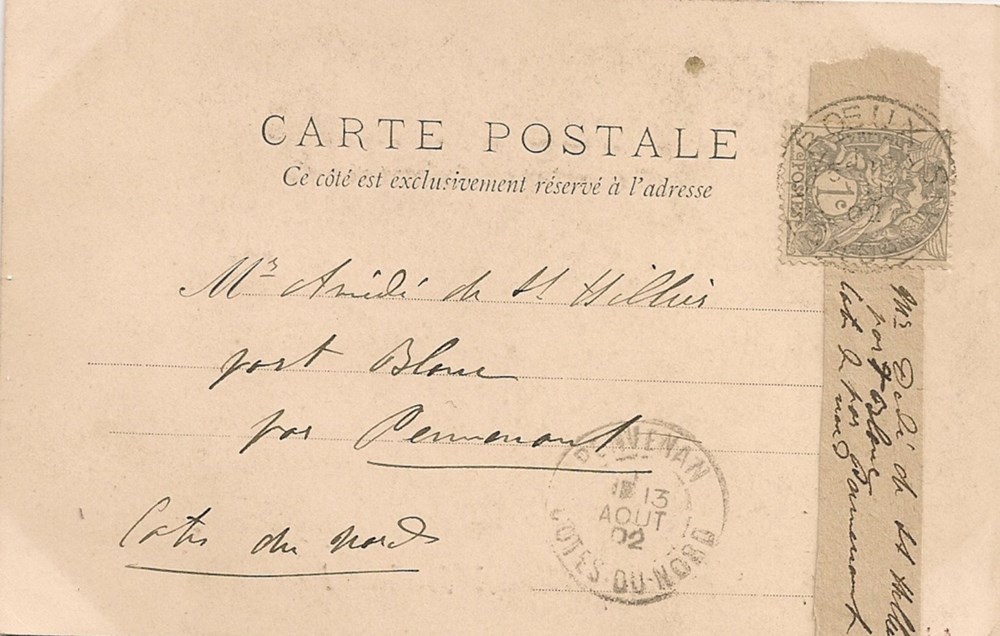 CARTE POSTALE
Ce côté est exclusivement réservé à l'adresse
Mrs Amédé de St Hillier
port Blanc
par Penvenant
Cotes du nord
PENVENAN
13
AOUT
02
COTES-DU-NORD
POSTES
1c
02
Mrs Dedé de St
port Blanc
par
Cotes du nord